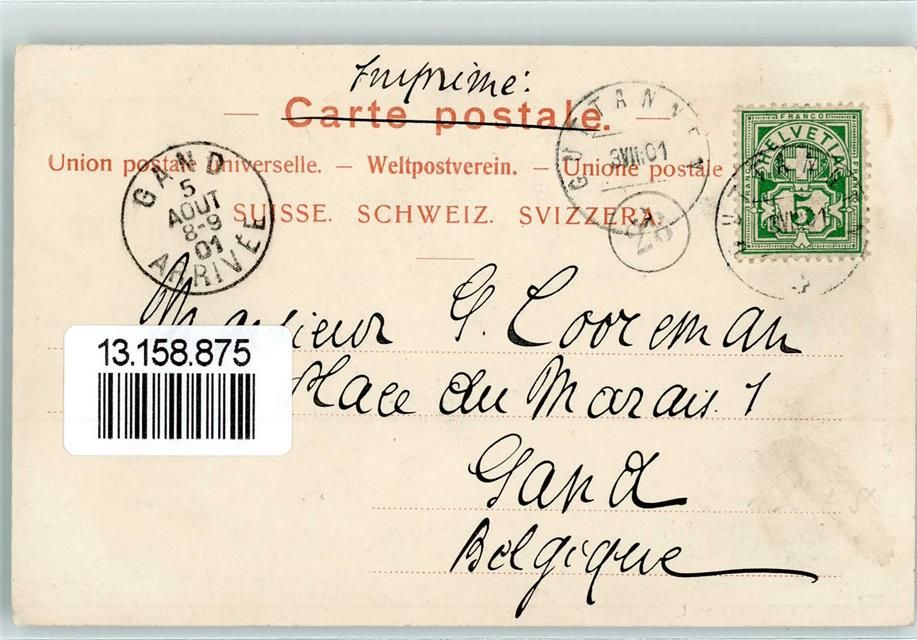 Imprimé:
Carte postale.
Union postale universelle. — Weltpostverein. — Unione postale
SUISSE. SCHWEIZ. SVIZZERA.
GAND
5
AOUT
8-9
01
ARRIVÉE
GUTTANNEN
3 VIII 01
FRANCO
HELVETIA
FRANCO
FRANCO
5
Monsieur G. Cooreman
Place du Marais 1
Gand
Belgique
13.158.875